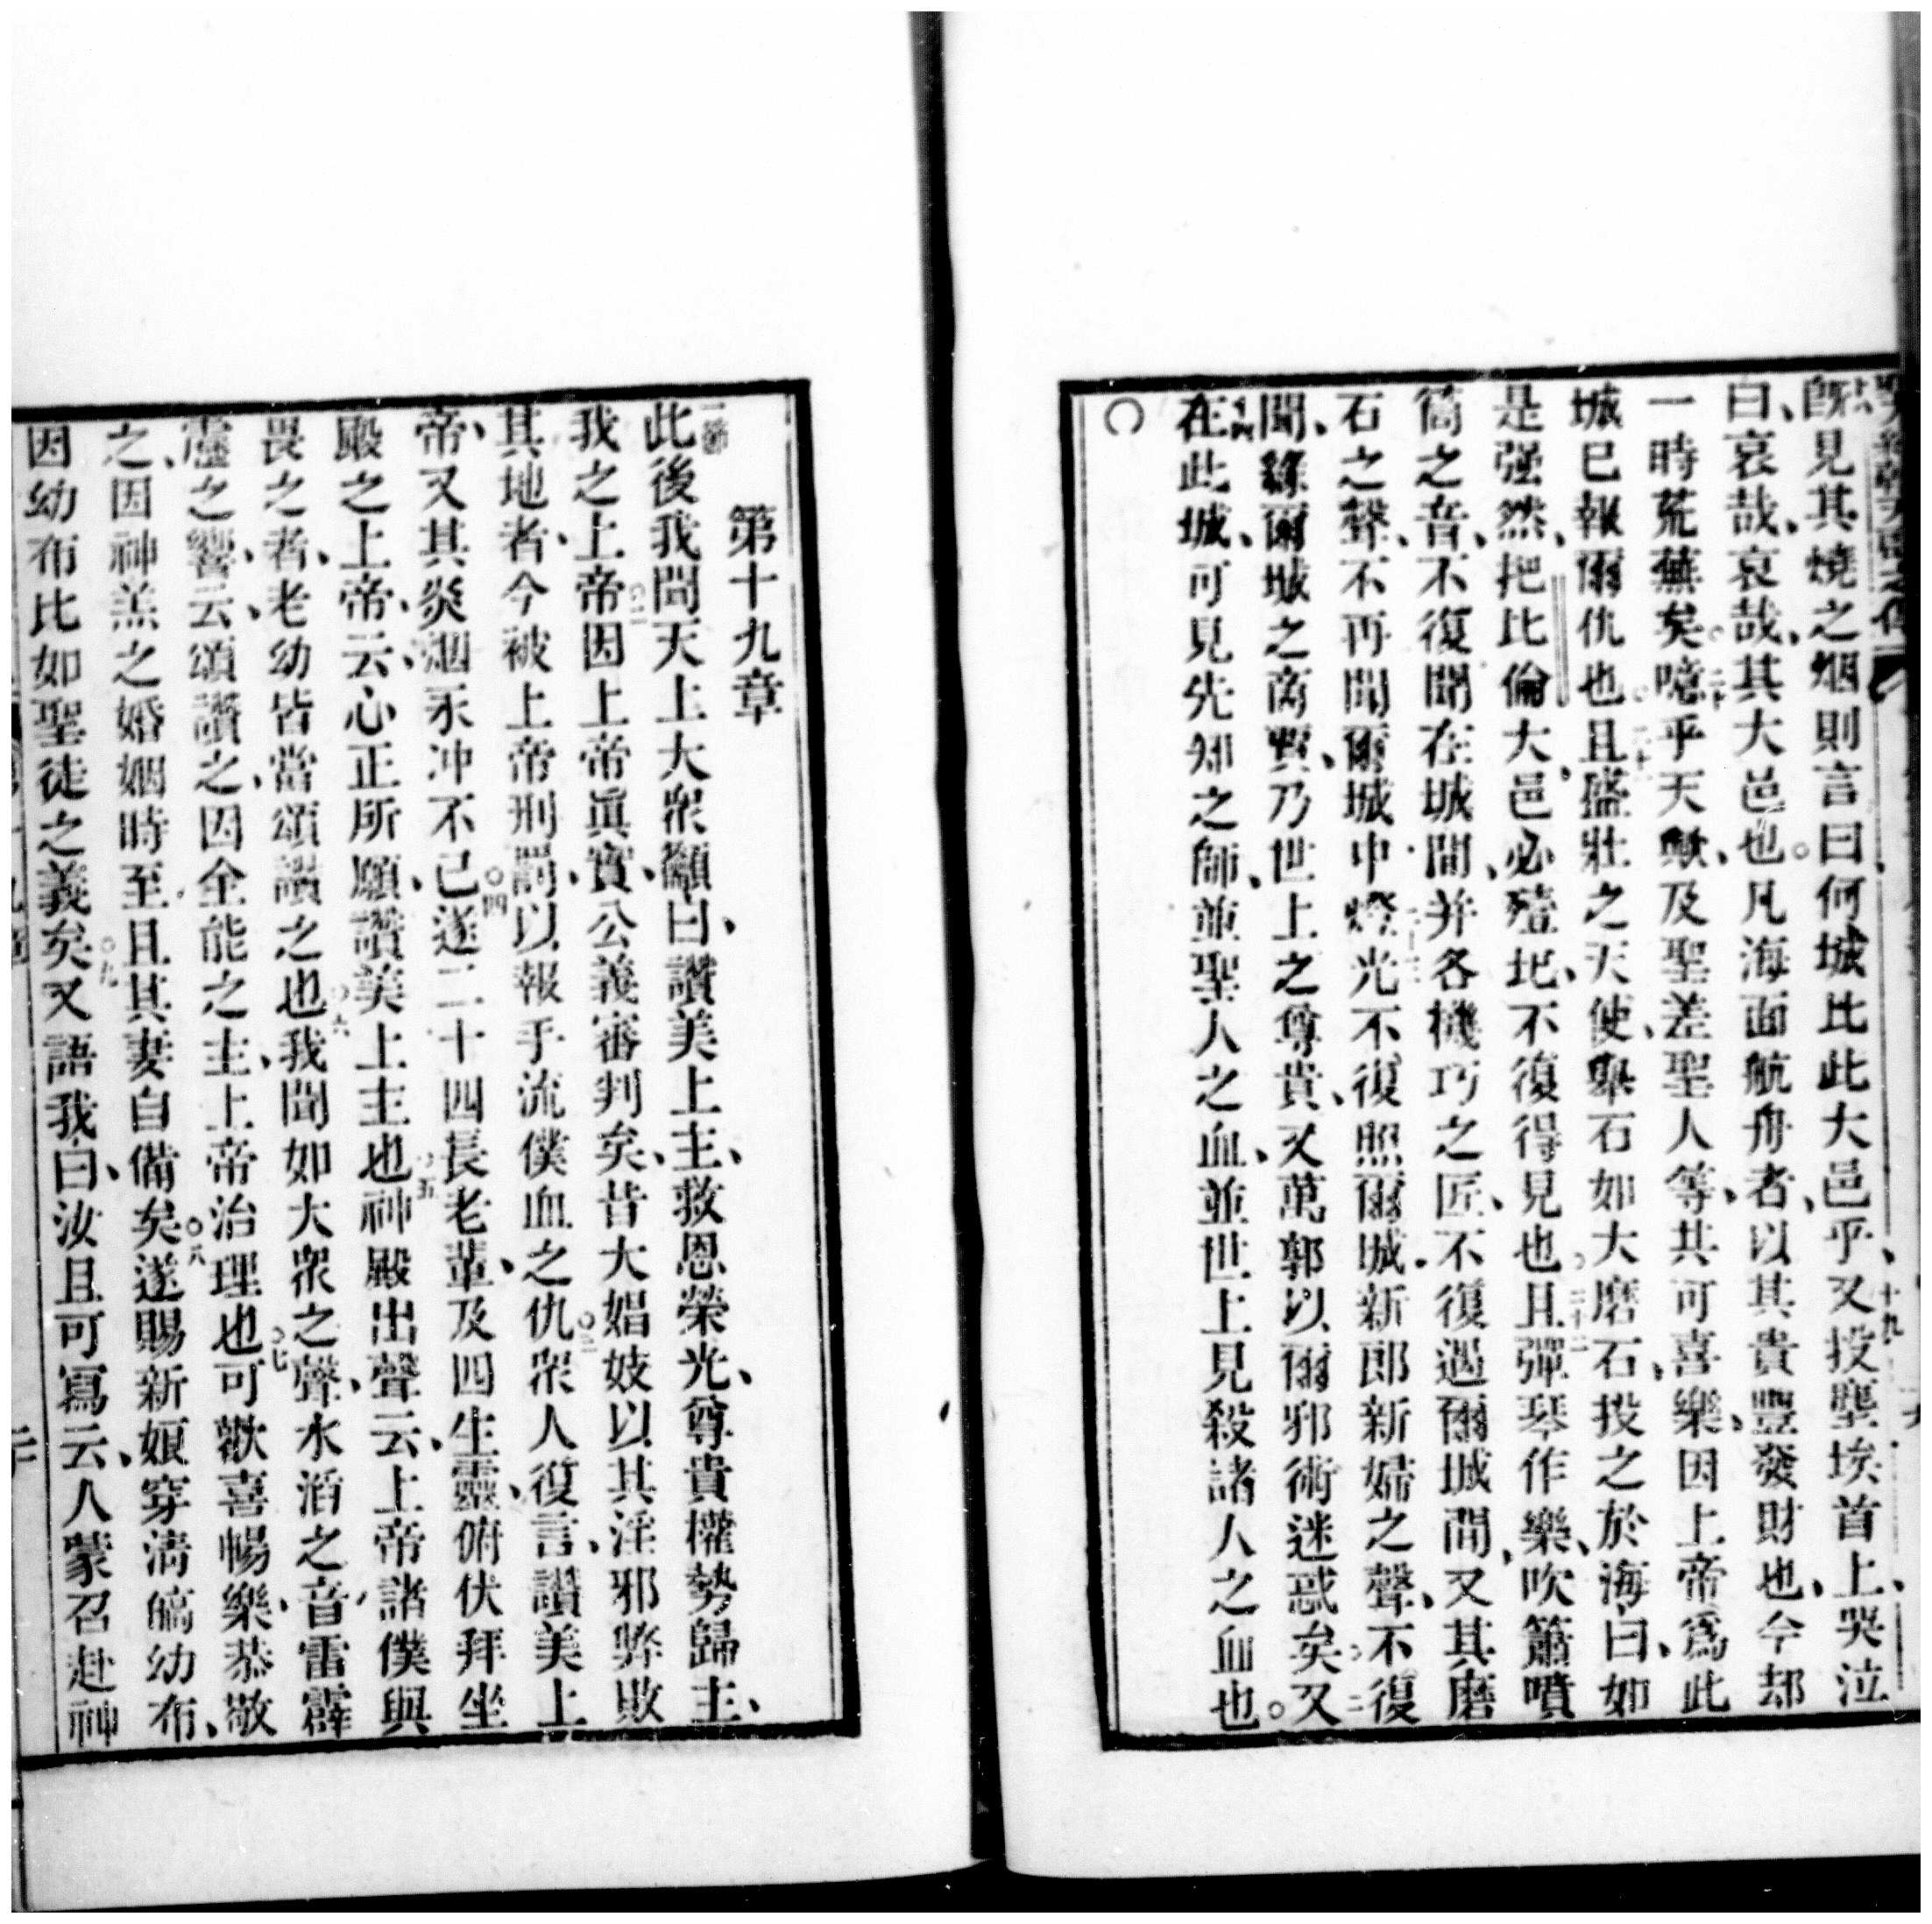 旣見其燒之烟則言曰何城比此大邑乎、十九又投塵埃首上、哭泣
曰、哀哉、哀哉、其大邑也。凡海面航舟者、以其貴豐發財也、今却
一時荒蕪矣。二十噫乎天歟、及聖差聖人等、其可喜樂、因上帝爲此
城已報爾仇也。二十一且盛壯之天使、舉石如大磨石、投之於海、曰、如
是强然、把比倫大邑、必殪圯、不復得見也。二十二且彈琴作樂、吹簫噴
筒之音、不復聞在城間、并各機巧之匠、不復遇爾城間、又其磨
石之聲、不再聞爾城中。二十三燈光不復照爾城、新郎新婦之聲、不復
聞、緣爾城之商賈、乃世上之尊貴、又萬郭以爾邪術迷惑矣。又
在此城、可見先知之師、並聖人之血、並世上見殺諸人之血也。
〇
第十九章
一節此後我問天上大衆籲曰、讚美上主、救恩榮光、尊貴權勢歸主、
我之上帝。二因上帝眞實、公義審判矣、昔大娼妓以其淫邪弊敗
其地者、今被上帝刑罰、以報手流僕血之仇。三衆人復言、讚美上
帝、又其炎烟永冲不已。四遂二十四長老輩、及四生靈、俯伏拜坐
殿之上帝、云、心正所願、讚美上主也。五神殿出聲云、上帝諸僕與
畏之者、老幼皆當頌讚之也。六我聞如大衆之聲、水滔之音、雷霹
靂之響、云、頌讚之、因全能之主、上帝治理也。七可歡喜暢樂、恭敬
之、因神羔之婚姻時至、且其妻自備矣。八遂賜新娘穿淸縞幼布、
因幼布比如聖徒之義矣。九又語我、曰、汝且可寫云、人蒙召赴神